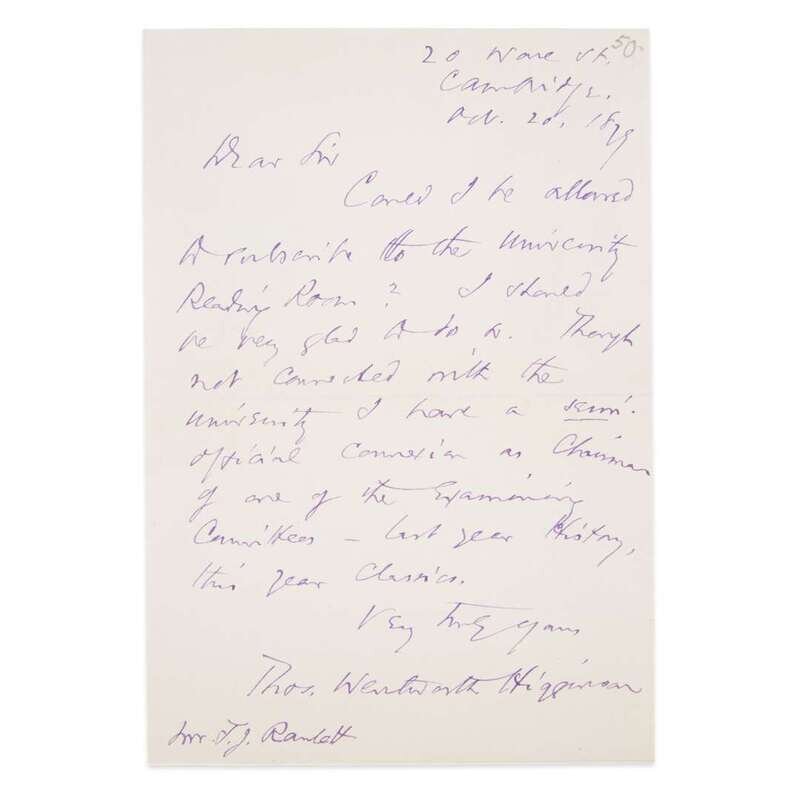 50-
20 Ware St.
Cambridge.
Oct. 20, 1879
Dear Sir
Could I be allowed
to subscribe to the University
Reading Room? I should
be very glad to do so. Though
not connected with the
University I have a semi-
official connexion as Chairman
of one of the Examining
Committees - last year History,
this year Classics.
Very truly yours
Thos. Wentworth Higginson
F. J. Ranlett